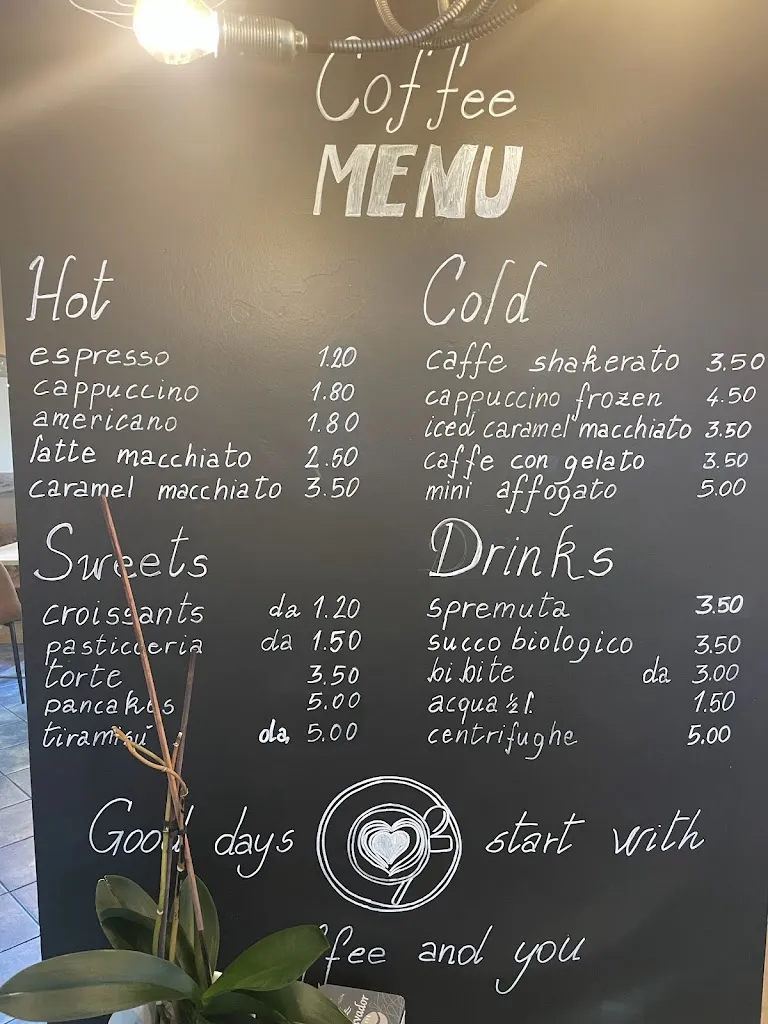 Coffee
MENU
Hot
espresso 1.20
cappuccino 1.80
americano 1.80
latte macchiato 2.50
caramel macchiato 3.50
Cold
caffe shakerato 3.50
cappuccino frozen 4.50
iced caramel macchiato 3.50
caffe con gelato 3.50
mini affogato 5.00
Sweets
croissants da 1.20
pasticceria da 1.50
torte 3.50
pancakes 5.00
tiramisù da 5.00
Drinks
spremuta 3.50
succo biologico 3.50
bibite da 3.00
acqua ½ l. 1.50
centrifughe 5.00
Good days start with
ffee and you